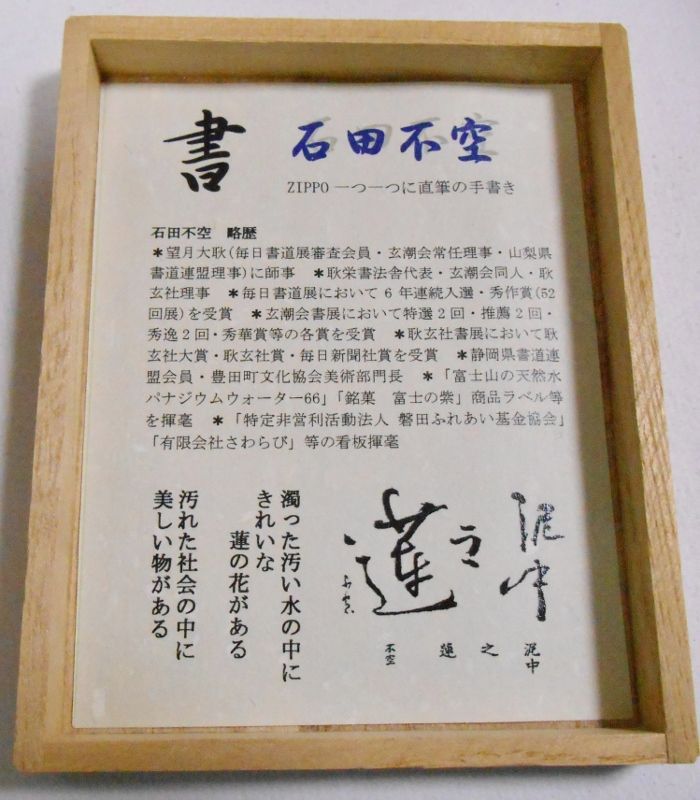 書
石田不空
ZIPPO 一つ一つに直筆の手書き
石田不空 略歴
＊望月大耿(毎日書道展審査会員・玄潮会常任理事・山梨県
書道連盟理事)に師事 ＊耿栄書法舎代表・玄潮会同人・耿
玄社理事 ＊毎日書道展において 6 年連続入選・秀作賞(52
回展)を受賞 ＊玄潮会書展において特選 2 回・推薦 2 回・
秀逸 2 回・秀華賞等の各賞を受賞 ＊耿玄社書展において耿
玄社大賞・耿玄社賞・毎日新聞社賞を受賞 ＊静岡県書道連
盟会員・豊田町文化協会美術部門長 ＊「富士山の天然水
バナジウムウォーター66」「銘菓 富士の紫」商品ラベル等
を揮毫 ＊「特定非営利活動法人 磐田ふれあい基金協会」
「有限会社さわらび」等の看板揮毫
泥中
之
蓮
泥中
之
蓮
不空
濁った汚い水の中に
きれいな
蓮の花がある
汚れた社会の中に
美しい物がある